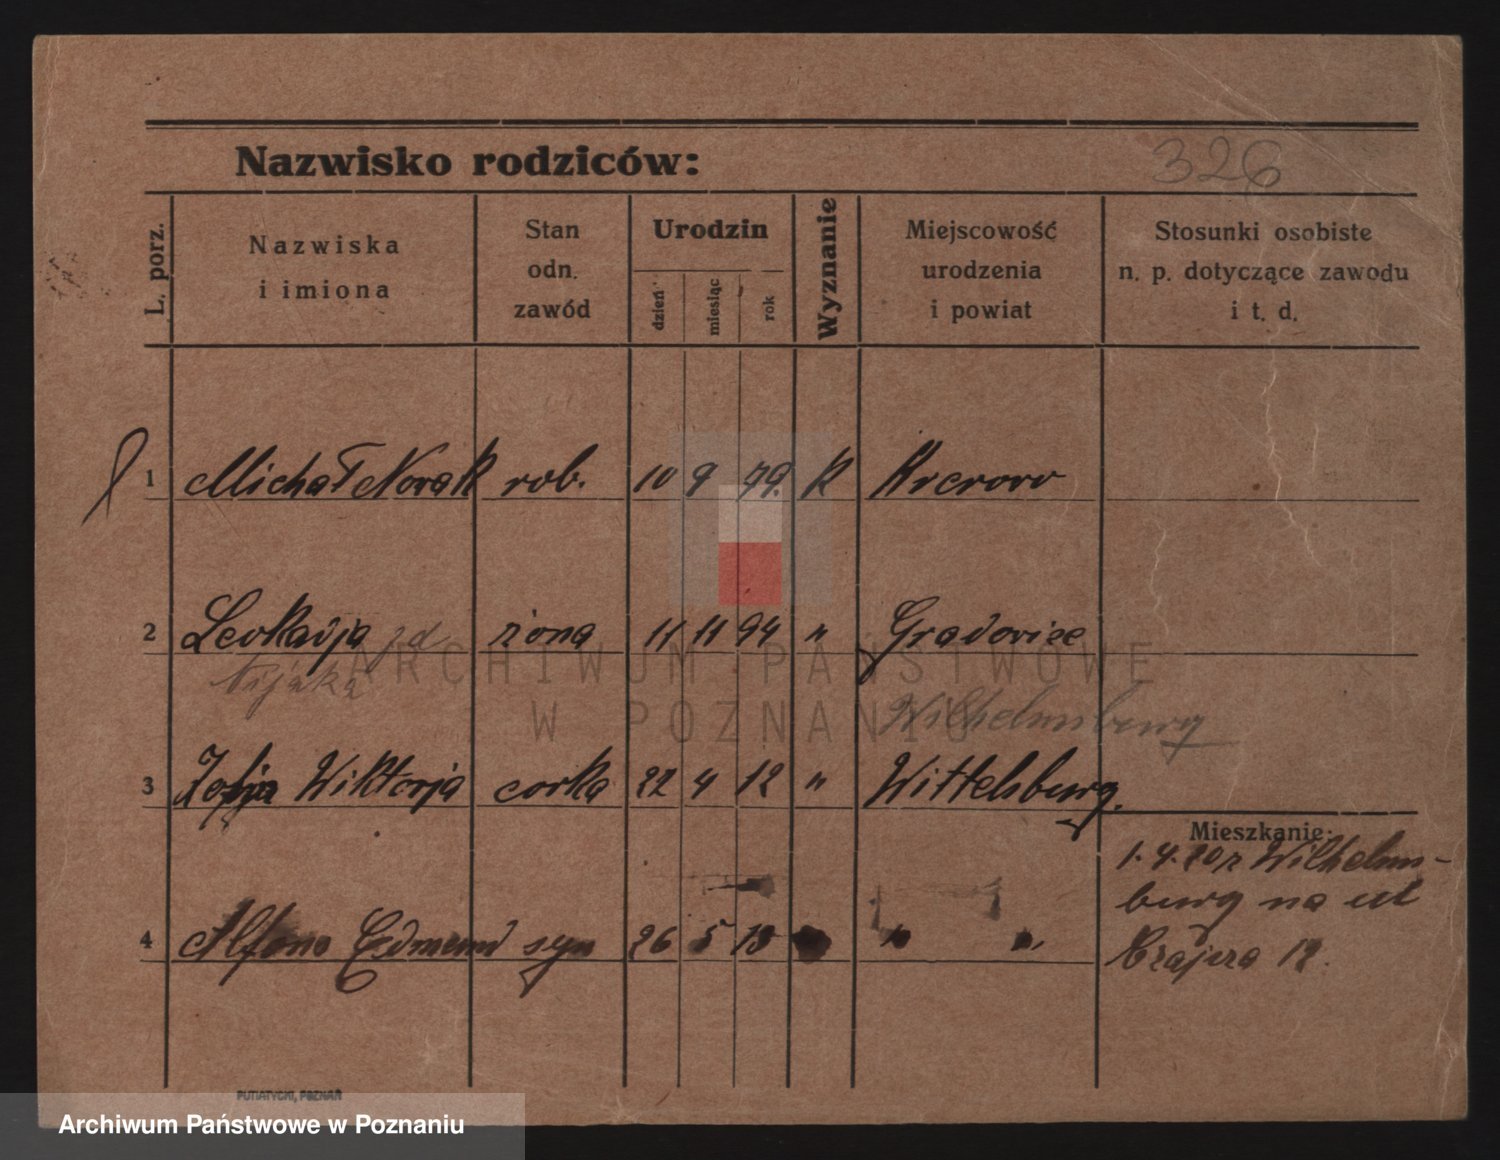 Nazwisko rodziców:
326
L. porz.
Nazwiska
i imiona
Stan
odn.
zawód
Urodzin
dzień
miesiąc
rok
Wyznanie
Miejscowość
urodzenia
i powiat
Stosunki osobiste
n. p. dotyczące zawodu
i t. d.
1 Michał Nowak rob. 10 9 79. K
2 Leokadja żona 11 11 94 "
ARCHIWUM PAŃSTWOWE
W POZNANIU
Wilhelmsburg
3 Zofja Wiktorja corka 22 4 12 " Wittelsburg.
Mieszkanie:
1. 4. 20 r Wilhelms-
burg na ul
12.
4 Alfons Edmund syn 26 5 13 " "
PUTIATYCKI, POZNAŃ
Archiwum Państwowe w Poznaniu